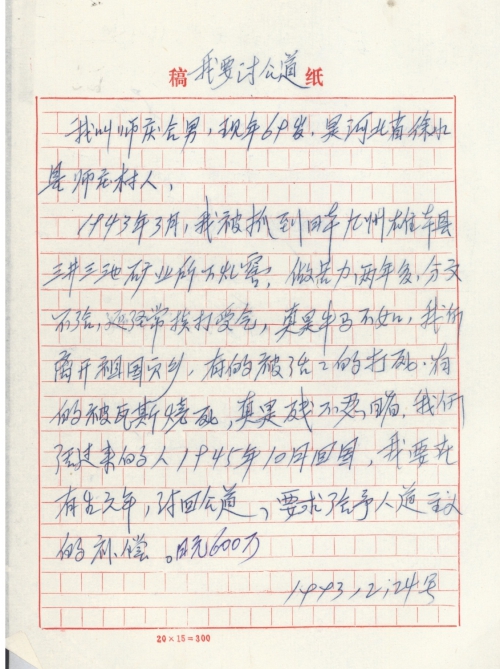 稿 我要讨公道 纸
我叫师庆合男，现年69岁，是河北省徐水
县师庄村人，
1943年3月，我被抓到日本九州 本县
三井三池矿业所下 窑，做苦力两年多，分文
不给，还经常挨打受气，真是牛马不如，我们
离开祖国 乡，有的被 的打死，有
的被瓦斯烧死，真是 不忍 ，我们
活过来的人1945年10月回国，我要在
有生 年，讨回公道，要求给予人道主义
的补偿。日元600万
1993,2,24号
20×15=300